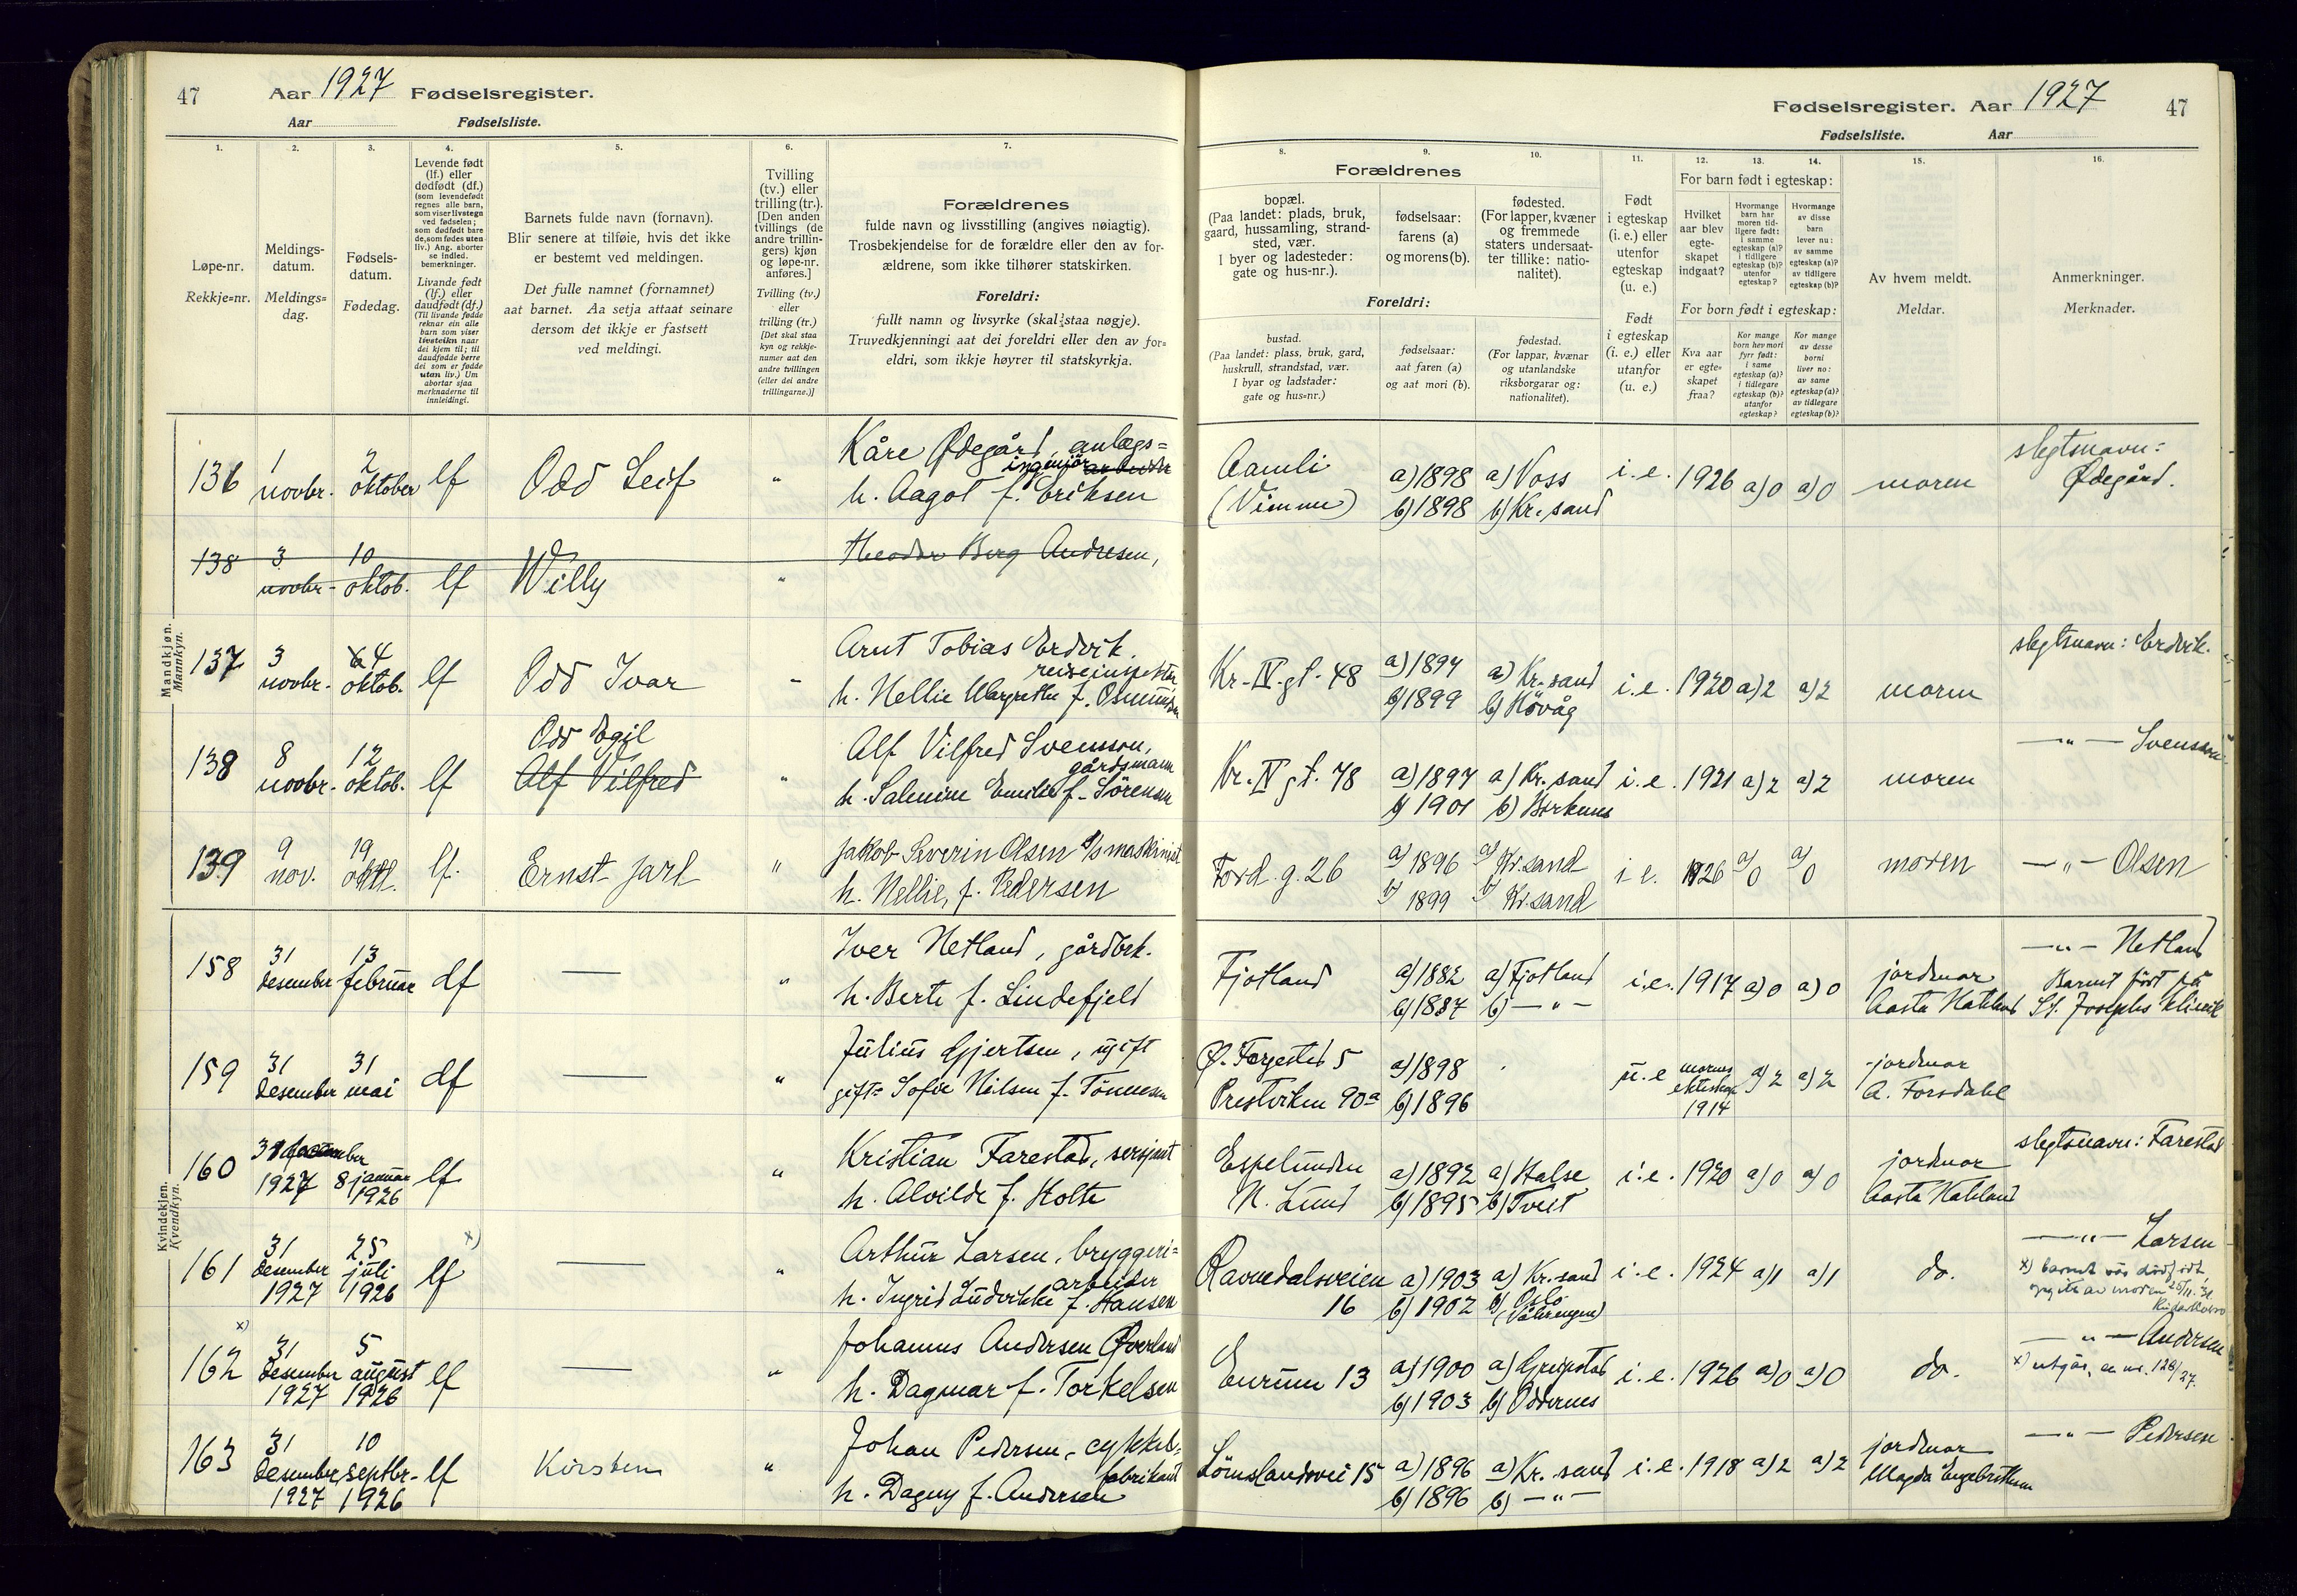 47 Aar 1927 Fødselsregister.
Aar Fødselsliste.
1.
2.
3.
4.
5.
6.
7.
Løpe-nr.
Rekkje=nr.
Meldings-
datum.
Meldings=
dag.
Fødsels-
datum.
Fødedag.
Levende født
(lf.) eller
dødfødt (df.)
(som levendefødt
regnes alle barn,
som viser livstegn
ved fødselen;
som dødfødt bare
de, som fødes uten
liv.) Ang. aborter
se indled.
bemerkninger.
Livande født
(lf.) eller
daudfødt (df.)
(Til livande fødde
reknar ein alle
barn som viser
livsteikn naar
dei kjem til; til
daudfødde berre
dei som er fødde
utan liv.) Um
abortar sjaa
merknaderne til
innleidingi.
Barnets fulde navn (fornavn).
Blir senere at tilføie, hvis det ikke
er bestemt ved meldingen.
Det fulle namnet (fornamnet)
aat barnet. Aa setja attaat seinare
dersom det ikkje er fastsett
ved meldingi.
Tvilling
(tv.) eller
trilling (tr.).
[Den anden
tvillings (de
andre trillin-
gers) kjøn
og løpe-nr.
anføres.]
Tvilling (tv.)
eller
trilling (tr.)
[Det skal staa
kyn og rekkje-
numer aat den
andre tvillingen
(eller dei andre
trillingarne.)]
Forældrenes
fulde navn og livsstilling (angives nøiagtig).
Trosbekjendelse for de forældre eller den av for-
ældrene, som ikke tilhører statskirken.
Foreldri:
fullt namn og livsyrke (skal staa nøgje).
Truvedkjenningi aat dei foreldri eller den av for=
eldri, som ikkje høyrer til statskyrkja.
Mandkjøn.
Mannkyn.
136 1 novbr. 2 oktober lf Odd Leif " Kåre Ødegård, anlægs=
ingeniør arbeider
h. Aagot f. Eriksen
138 3 novbr- 10 oktob. lf Willy " Theodor Berg Andresen,
137 3 novbr. 4 oktob. lf Odd Ivar " Arnt Tobias Erdvik,
reiseinspektør
h. Nellie Margrethe f.
138 8 novbr. 12 oktob. lf Odd Egil
Alf Vilfred " Alf Vilfred Svensson,
gårdsmann
h. Salmine Emilie f. Sörensen
139 9 nov. 19 okt. lf. Ernst Jarl " Jakob Severin Olsen d/s maskinist
h. Nellie, f. Pedersen
Kvindekjøn.
Kvendkyn.
158 31 desember 13 februar df — " Iver Netland, gårdbrk.
h. Berte f. Lindefjeld
159 31 desember 31 mai df — " Julius Gjertsen, ugift
gift= Sofie Nilsen f. Tönnesen
160 31 december 1927 8 januar 1926 lf " Kristian Farestad, sersjant
h. Alvilde f. Holte
161 31 desember 1927 25 juli 1926 lf x) — " Arthur Larsen, bryggeri=
arbeider
h. Ingrid Ludvikke f. Hansen
162 x) 31 desember 1927 5 august 1926 lf — " Johannes Andersen Øverland
h. Dagmar f. Torkelsen
163 31 desember 1927 10 septbr. 1926 lf Kirsten " Johan Pedersen, cykkel=
fabrikant
h. Dagny f. Andersen
Fødselsregister. Aar 1927 47
Fødselsliste. Aar
8.
9.
10.
11.
12.
13.
14.
15.
16.
Forældrenes
bopæl.
(Paa landet: plads, bruk,
gaard, hussamling, strand-
sted, vær.
I byer og ladesteder:
gate og hus-nr.).
fødselsaar:
farens (a)
og morens (b).
fødested.
(For lapper, kvæner
og fremmede
staters undersaat-
ter tillike: natio-
nalitet).
Foreldri:
bustad.
(Paa landet: plass, bruk, gard,
huskrull, strandstad, vær.
I byar og ladstader:
gate og hus=nr.)
fødselsaar:
aat faren (a)
og aat mori (b).
fødestad.
(For lappar, kvænar
og utanlandske
riksborgarar og:
nationalitet).
Født
i egteskap
(i. e.) eller
utenfor
egteskap
(u. e.)
Født
i egteskap
(i. e.) eller
utanfor
(u. e.)
For barn født i egteskap:
Hvilket
aar blev
egte-
skapet
indgaat?
Hvormange
barn har
moren tid-
ligere født:
i samme
egteskap (a)?
i tidligere
egteskap (b)?
utenfor
egteskap?
Hvormange
av disse
barn
lever nu:
av samme
egteskap (a)?
av tidligere
egteskap (b)?
For born født i egteskap:
Kva aar
er egte=
skapet
fraa?
Kor mange
born hev mori
fyrr født:
i same
egteskap (a)?
i tidlegare
egteskap (b)?
utanfor
egteskap?
Kor mange
av desse
borni
liver no:
av same
egteskap (a)?
av tidlegare
egteskap (b)?
Av hvem meldt.
Meldar.
Anmerkninger.
Merknader.
Aamli
(Vimme) a) 1898
b) 1898 a) Voss
b) Kr. sand i. e. 1926 a) 0 a) 0 moren slegtsnavn:
Ødegård.
Kr. IV. gt. 48 a) 1897
b) 1899 a) Kr. sand
b) Hövåg i. e. 1920 a) 2 a) 2 moren slegtsnavn: Erdvik.
Kr. IV gt. 78 a) 1897
b) 1901 a) Kr. sand
b) Birkenes i. e. 1921 a) 2 a) 2 moren — " — Svensson
Tord. g. 26 a) 1896
b) 1899 a) Kr. sand
b) Kr. sand i e. 1926 a) 0 a) 0 moren — " — Olsen
Fjotland a) 1882
b) 1887 a) Fjotland
b) — " — i. e. 1917 a) 0 a) 0 jordmor
Aasta Hatland — " — Netland
Barnet født på
St. Josephs klinik
Ø. 5
Prestviken 90a a) 1898
b) 1896 u. e morens
ekteskap
1914 a) 2 a) 2 jordmor
A. Forsdahl
Espelunden
N. Lund a) 1892
b) 1895 a) Halse
b) Tveit i. e. 1920 a) 0 a) 0 jordmor
Aasta Hatland slegtsnavn: Farestad
Ravnedalsveien
16 a) 1903
b) 1902 a) Kr. sand
b) Oslo
(Vålerengen) i. e. 1924 a) 1 a) 1 do. — " — Larsen
x) barnet var dødfødt,
opgitt av moren
Enrum 13 a) 1900
b) 1903 a) Greipstad
b) Oddernes i. e. 1926 a) 0 a) 0 do. — " — Andersen
x) utgår, se nr. 128/27.
Lömslandsvei 15 a) 1896
b) 1896 a) Kr. sand
b) — " — i. e. 1918 a) 2 a) 2 jordmor
Magda Engebretsen — " — Pedersen